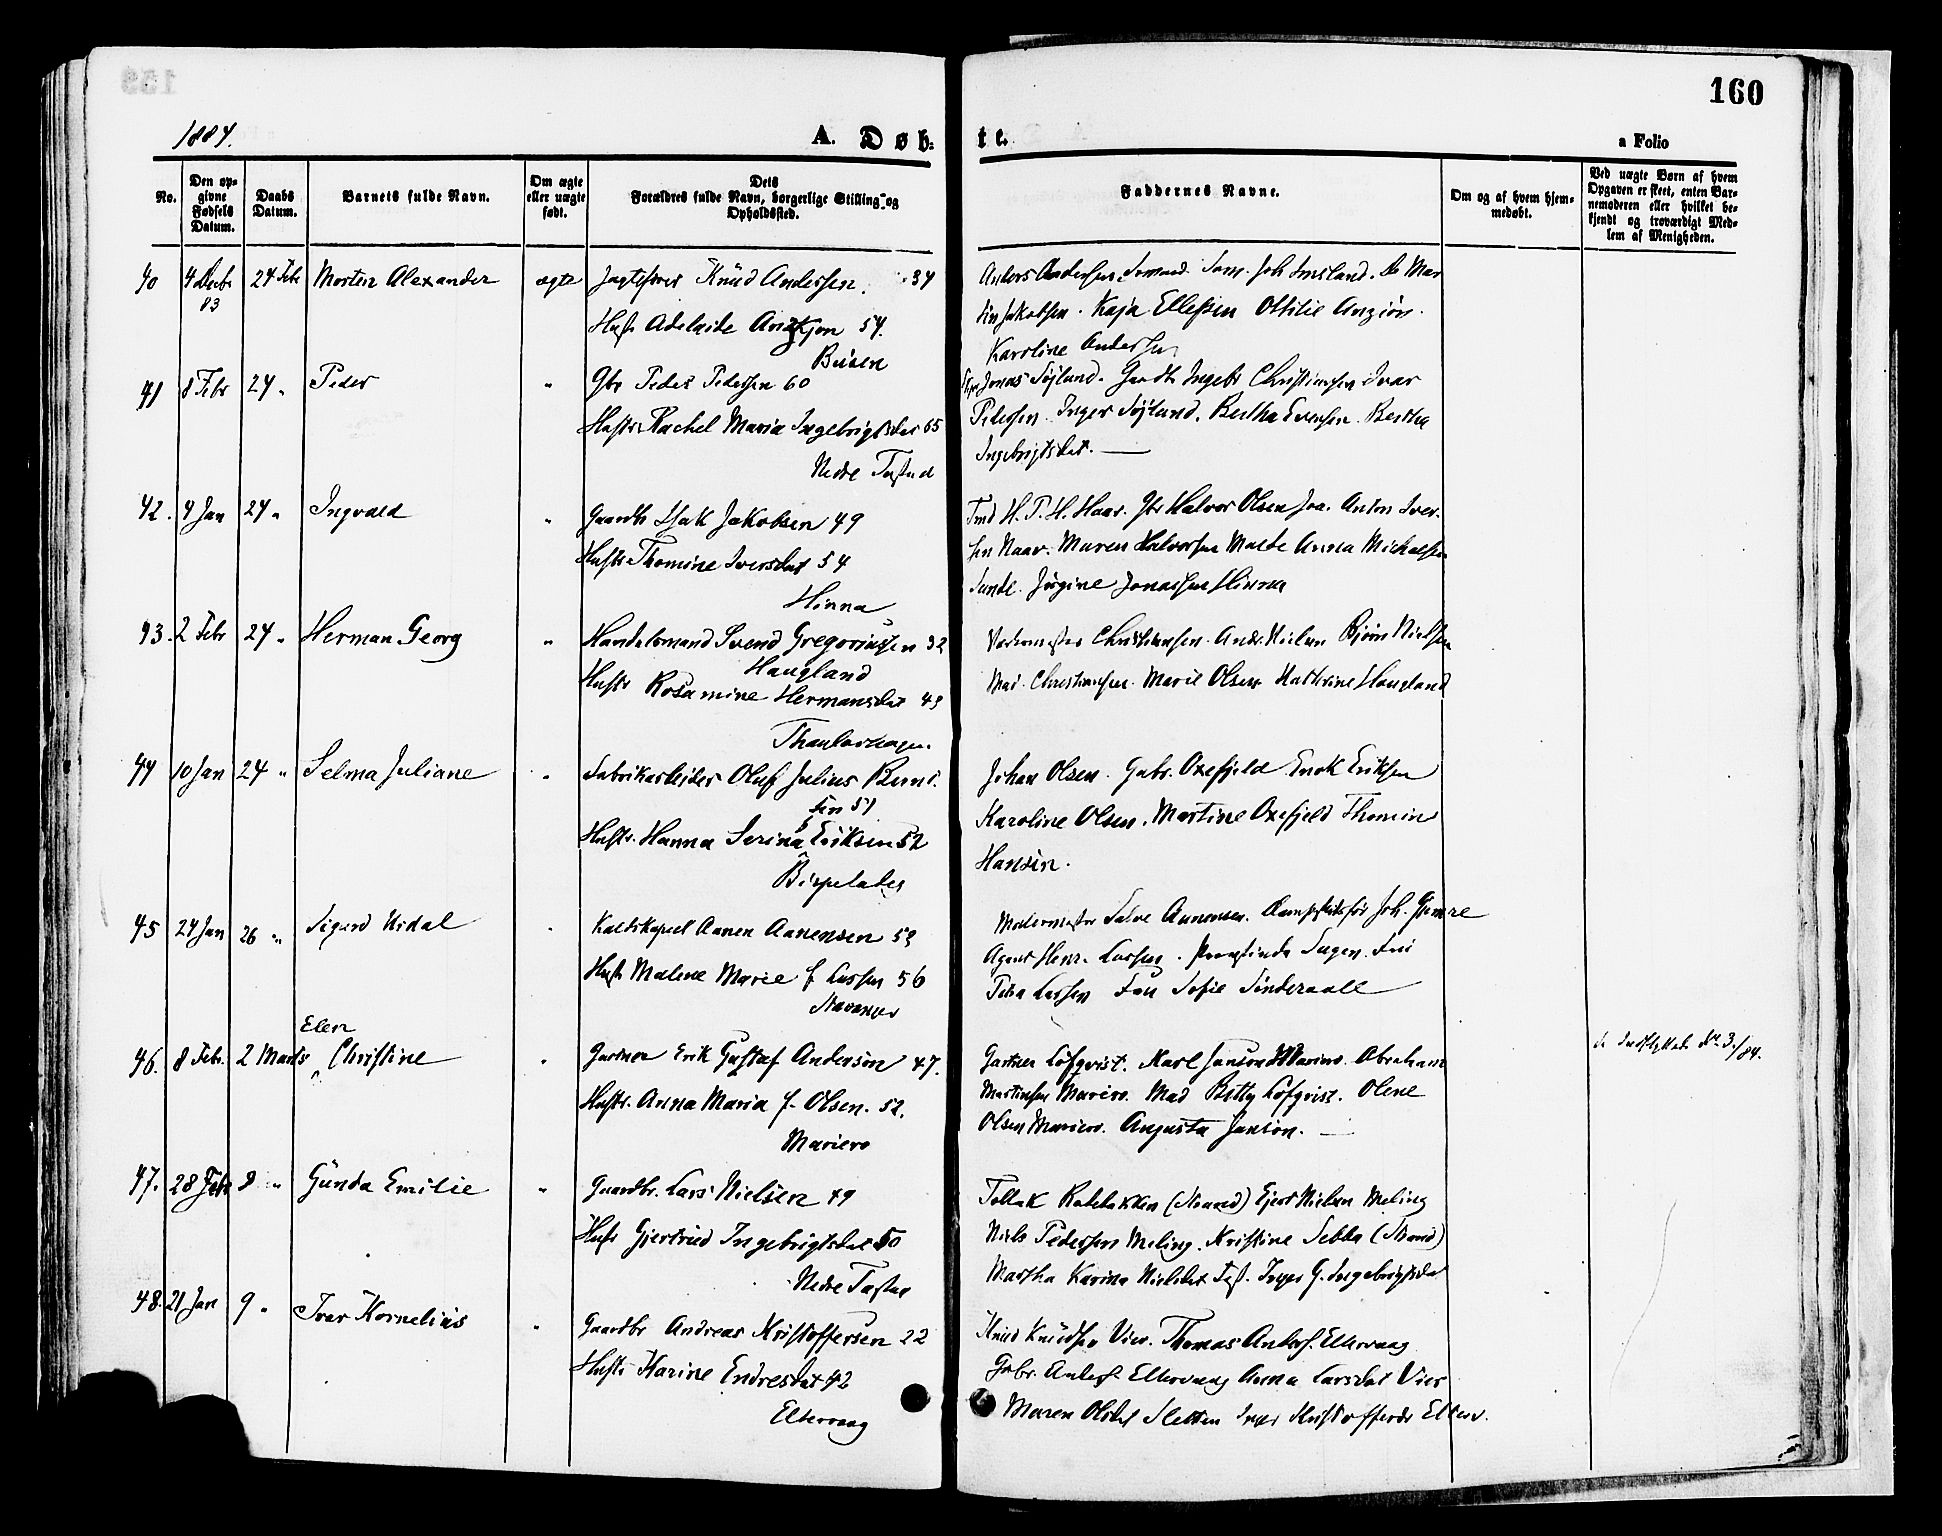 160
1884.
A. Døb-
te.
a Folio
No.
Den op-
givne
Fødsels
Datum.
Daabs
Datum.
Barnets fulde Navn.
Om ægte
eller uægte
født.
Dets
Forældres fulde Navn, borgerlige Stilling og
Opholdssted.
Faddernes Navne.
Om og af hvem hjem-
medøbt.
Ved uægte Børn af hvem
Opgaven er skeet, enten Bar-
nemoderen eller hvilket be-
kjendt og troværdigt Med-
lem af Menigheden.
40 4 Decbr 24 Febr Morten Alexander ægte Jagtefører Knud Anderssen 34
83
Hustr Adelaide 54.
Anders Anderssen Joh Imsland.
Jakobsen. Kaja Ellefsen Othilie
Karoline Anderssen
41 8 Febr 24 " Peder " Gbr Peder Pedersen 60
Hustr Rachel Maria Ingebrigtsdat 65
Nedre Tasted
Jonas Søjland. Gaardbr Ingebr Christiansen Ivar
Pedersen. Inger Søjland. Bertha Evensen. Bertha
Ingebrigtsdat.
42. 4 Jan 24 " Ingvald " Gaardbr Isak Jakobsen 49
Hustr Thomine Iversdat 54
Hinna
H. P. H. Haar. Gbr Halvor Olsen Anton Iver-
sen Maren Halvorsen Anna Michaelsen
Sunde. Jørgine Jonassen Hinna
43. 2 Febr 24 " Herman Georg " Handelsmand Svend Gregoriussen 32
Haugland
Hustr Rosamine Hermansdat 43
Christiansen. Andr. Nielsen Bjørn Nielsen
Mad. Christiansen. Marie Olsen Kathrine Haugland
44 10 Jan 24 " Selma Juliane " Fabrikarbeider Oluf Julius
sen 51
Hustr. Hanna Serina f Eriksen 52
Bispeladet
Johan Olsen. Gabr. Oxefjeld Enok Eriksen
Karoline Olsen. Martine Oxefjeld Thomine
Hansen.
45 24 Jan 26 " Sigurd Urdal " Aanen Aanensen 53
Hustr Malene Marie f Larsen 56
Stavanger
Salve Aanensen. Joh. Gjemre
Agent Henr. Larsen.
Larsen Sofie
46. 8 Febr. 2 Marts Christine " Gartner Erik Gustaf Anderson 47.
Elen
Hustr. Anna Maria f. Olsen. 52.
Mariero
Gartner Löfqvist. Karl Janson Mariero. Abraham
Martinsen Mariero. Mad Betty Löfqvist. Olene
Olsen Mariero. Augusta Janson.
47. 28 Febr 8 " Gunda Emilie " Gaardbr. Lars Nielsen 49
Hustr Gjertrud Ingebrigtsdat 50
Nedre Tasted
Tollak (Strand) Ejert Nielsen Meling
Niels Pedersen Meling. Kristine (Strand)
Martha Karina Nielsdat Tast. Inger G. Ingebrigtsdat
48. 21 Jan 9 " Ivar Kornelius " Gaardbr Andreas Kristoffersen 22
Hustr Karine Endresdat 42
Eltervaag
Knud Knudsen Vier. Thomas Anders. Eltervaag
Gabr. Anders. Eltervaag Anna Larsdat Vier
Maren Olsdat Sletten Inger Kristoffersdr Elterv.